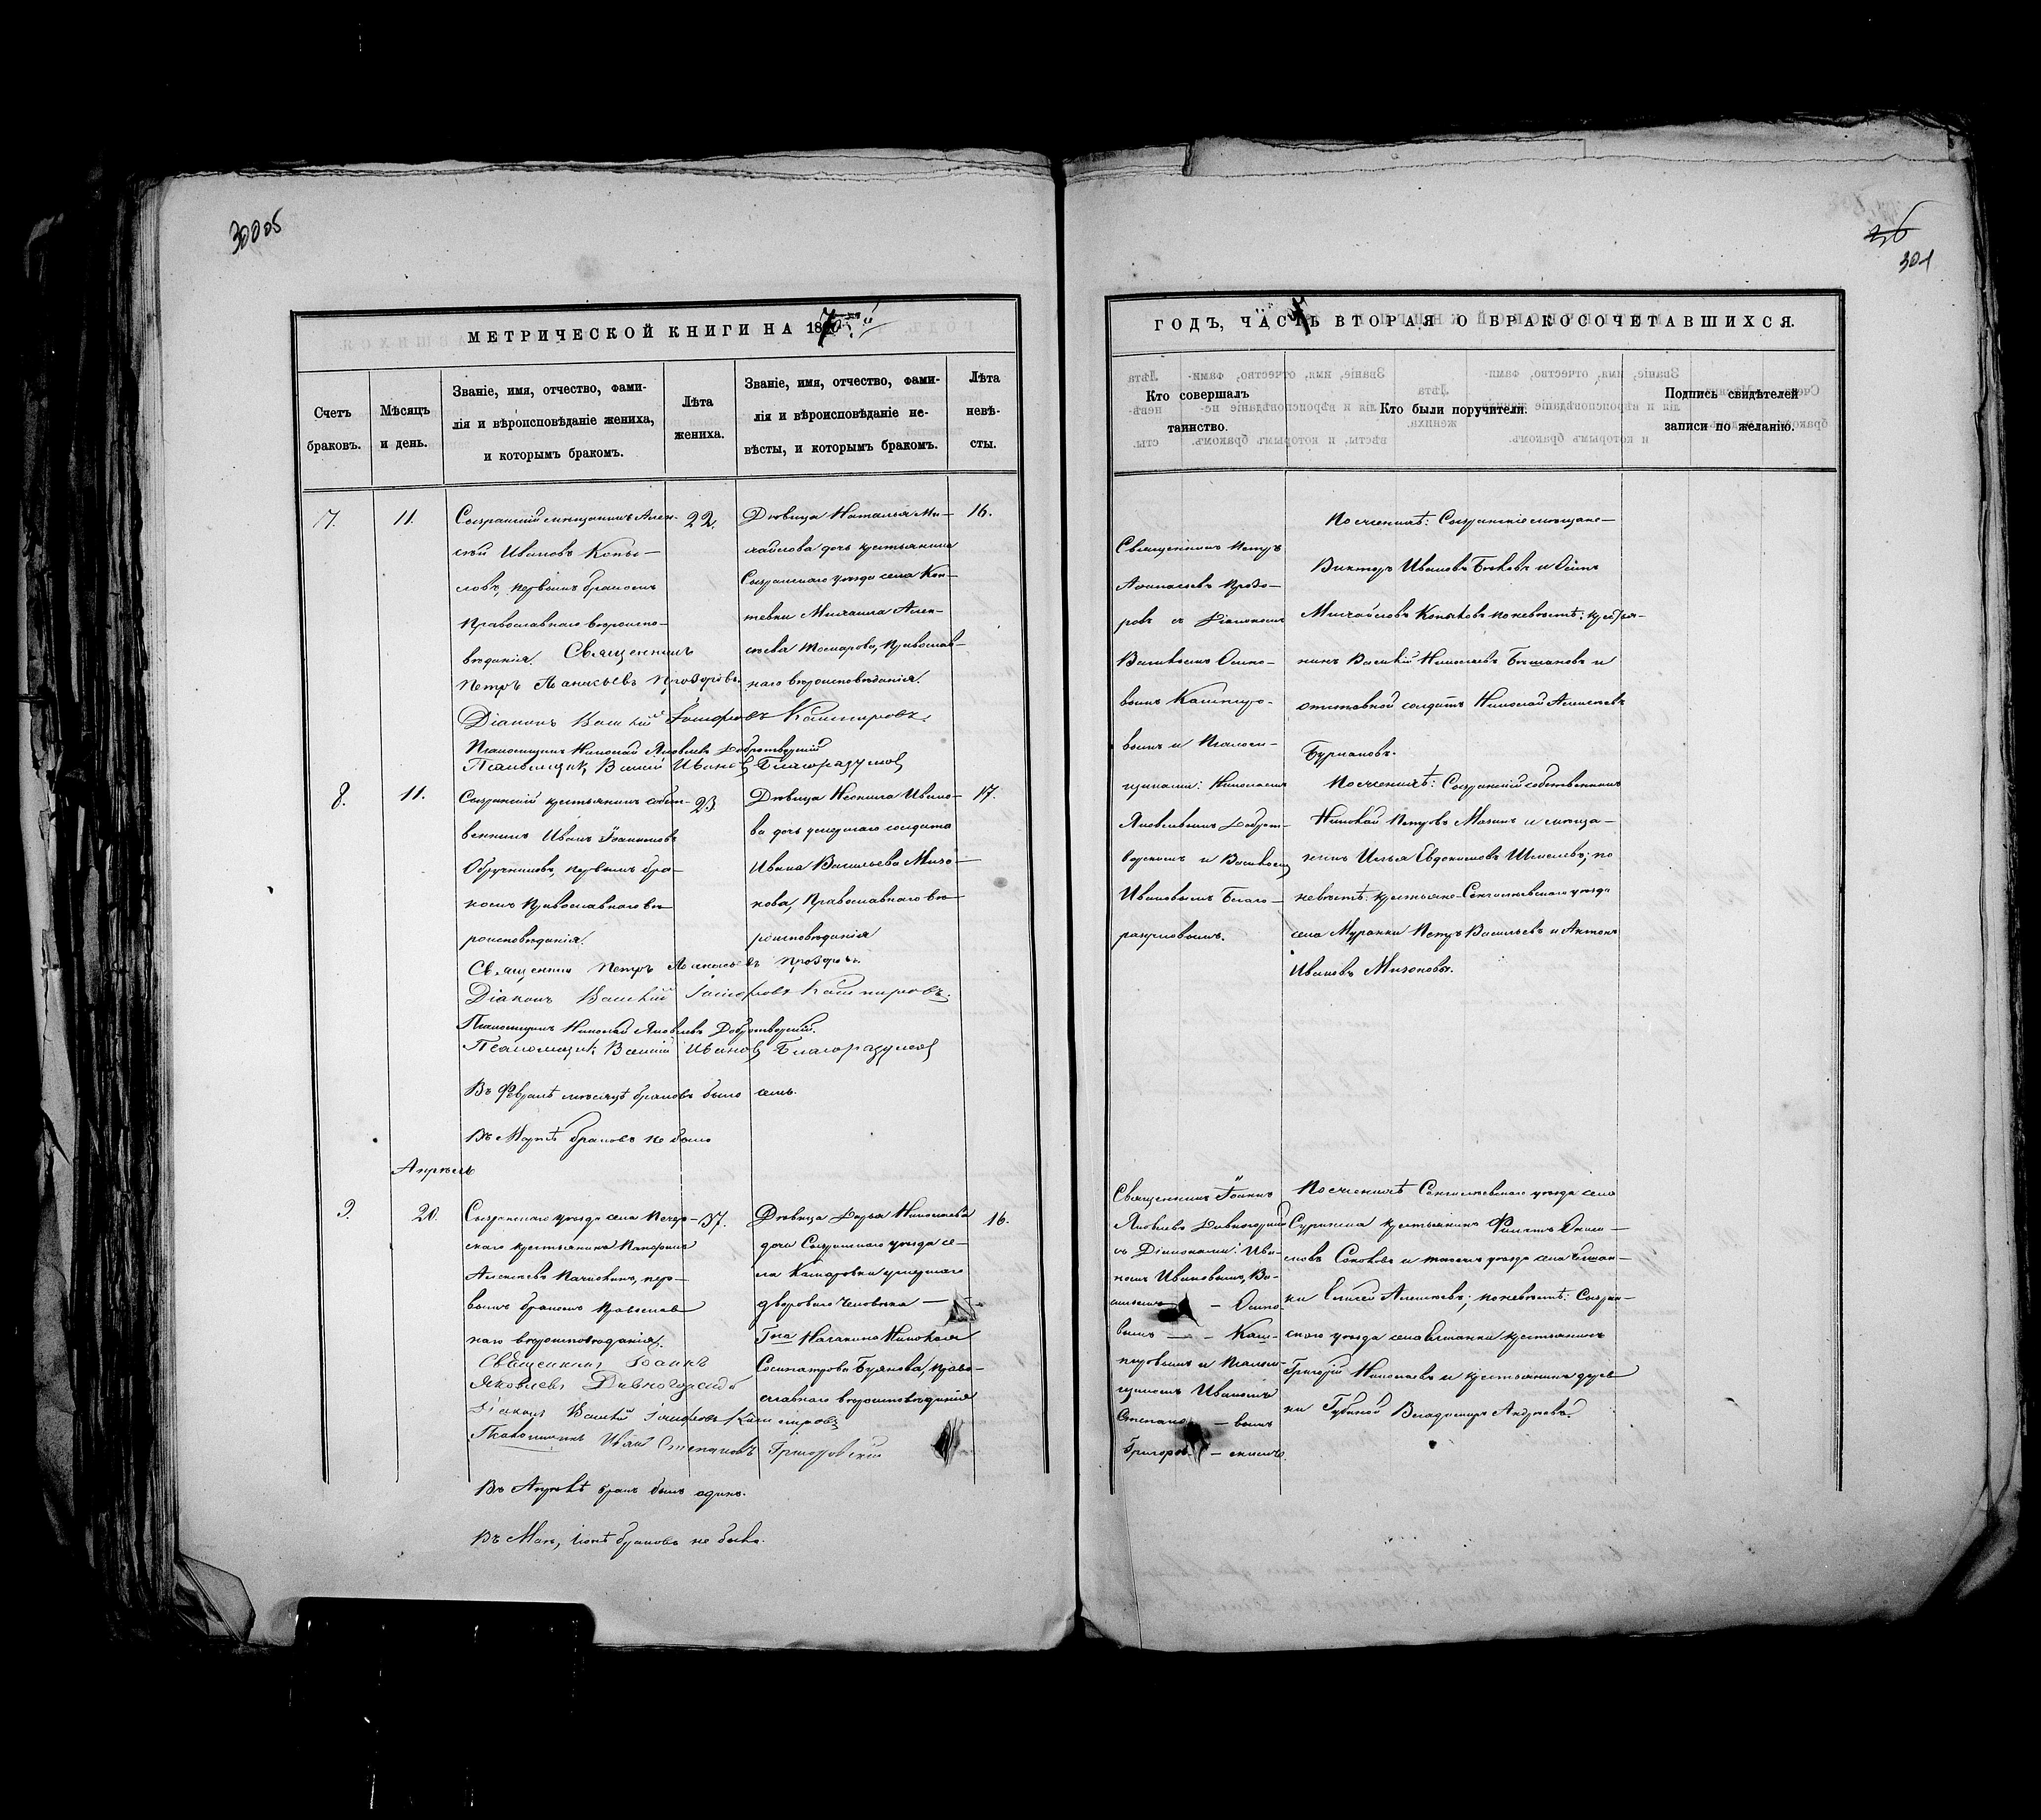 300об
МЕТРИЧЕСКОЙ КНИГИ НА 1875й
Счетъ браковъ.
Мѣсяцъ и день.
Званіе, имя, отчество, фами-
лія и вѣроисповѣданіе жениха,
и которымъ бракомъ.
Лѣта жениха.
Званіе, имя, отчество, фами-
лія и вѣроисповѣданіе не-
вѣсты, и которымъ бракомъ.
Лѣта невѣ-
сты.
7.
11.
Сызранскій мѣщанинъ Алек-
сѣй Ивановъ Копы-
ловъ, первымъ бракомъ
Православнаго вѣроиспо-
вѣданія. Священникъ
Петръ Аѳанасьевъ Прозоровъ.
Діаконъ Василій Іосифовъ Кашпировъ.
Псаломщикъ Николай Яковлевъ Добротворскій
Псаломщик Василій Иванов Благоразумов
22.
Дѣвица Наталья Ми-
хайлова дочь крестьянина
Сызранскаго уѣзда села Коп-
тевки Михаила Алек-
сѣева Токарева, Православ-
наго вѣроисповѣданія.
16.
8.
11.
Сызранскій крестьянинъ собст-
венникъ Иванъ Іоакимовъ
Обручниковъ, первымъ бра-
комъ Православнаго вѣ-
роисповѣданія.
Священникъ Петръ Аѳанасьевъ Прозоровъ.
Діаконъ Василій Іосифовъ Кашпировъ.
Псаломщикъ Николай Яковлевъ Добротворскій.
Псаломщик Василій Иванов Благоразумов
23
Дѣвица Неонила Ивано-
ва дочь умершаго солдата
Ивана Васильева Мизо-
нова, Православнаго вѣ-
роисповѣданія
17.
Въ Февралѣ мѣсяцѣ браковъ было семь.
Въ Мартѣ браковъ не было
Апрѣль
9.
20.
Сызранскаго уѣзда села Печер-
скаго крестьянинъ Панфилъ
Алексѣевъ, пер-
вымъ бракомъ Православ
наго вѣроисповѣданія.
Священникъ Іоаннъ
Яковлевъ Дивногорскій
Діаконъ Василій Іосифовъ Кашпировъ
Псаломщикъ Иванъ Степановъ Григоровскій
37.
Дѣвица Дарья Николаева
дочь Сызранскаго уѣзда се-
ла Комаровки умершаго
двороваго человѣка —
Гна Николая
Сосипатрова Буянова, Право-
славнаго вѣроисповѣданія
16.
Въ Апрѣлѣ бракъ былъ одинъ.
Въ Маѣ, Іюнѣ браковъ не было.
301
ГОДЪ, ЧАСТЬ ВТОРАЯ О БРАКОСОЧЕТАВШИХСЯ.
Кто совершалъ таинство.
Кто были поручители.
Подпись свидѣтелей
записи по желанію.
Священникъ Петръ
Аѳанасьевъ Прозо-
ровъ съ Діакономъ
Василіемъ Осипо-
вымъ Кашпиро-
вымъ и Псалом-
щиками: Николаемъ
Яковлевымъ Доброт-
ворскимъ и Василіемъ
Ивановымъ Благо-
разумовымъ.
По женихѣ: Сызранскіе мѣщане
Викторъ Ивановъ и Осипъ
Михайловъ Копыловъ по невѣстѣ: крестья-
нинъ Василій Николаевъ и
отставной солдатъ Николай Алексѣевъ
Бурлаковъ.
По женихѣ: Сызранскій собственникъ
Николай Петровъ Мазинъ и мѣща-
нинъ Илья Евдокимовъ Шмелевъ; по
невѣстѣ: крестьяне Сенгилеевскаго уѣзда
села Муранки Петръ Васильевъ и Антонъ
Ивановъ Мизоновы.
Священникъ Іоаннъ
Яковлевъ Дивногорскій
съ Діаконами: Ива-
номъ Ивановымъ, Ва-
силіемъ — Осипо-
вымъ — Каш-
пировымъ и Псалом-
щикомъ Иваномъ
Степано — вымъ
Григоров — скимъ.
По женихѣ Сенгилеевскаго уѣзда села
крестьянинъ Филипъ
Соколовъ и того же уѣзда села
Елисей Алексѣевъ; по невѣстѣ: Сызран-
скаго уѣзда села крестьянинъ
Григорій Николаевъ и крестьянинъ дерев
ни Губиной Владимиръ Андреевъ.